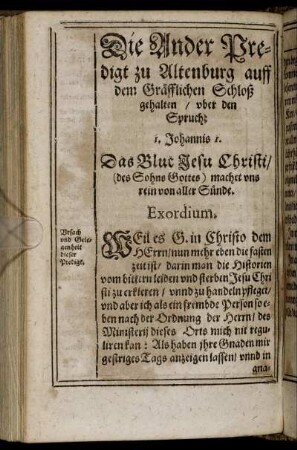 Die Ander Pre-
digt zu Altenburg auff
dem Gräfflichen Schloß
gehalten / vber den
Spruch:
1. Johannis 1.
Das Blut Jesu Christi /
(des Sohns Gottes) machet vns
rein von aller Sünde.
Exordium.
Vrsach
vnd Gele-
genheit
dieser
Predigt.
WEil es G. in Christo dem
HErrn / nun mehr eben die fasten
zeit ist / darin man die Historien
vom bittern leiden vnd sterben Jesu Chri
sti zu erkleren / vnnd zu handeln pfleget /
vnd aber ich als ein frembde Person so e-
ben nach der Ordnung der Herrn / des
Ministerij dieses Orts mich nit regu-
liren kan: Als haben jhre Gnaden mir
gestriges Tags anzeigen lassen / vnnd in
gna-